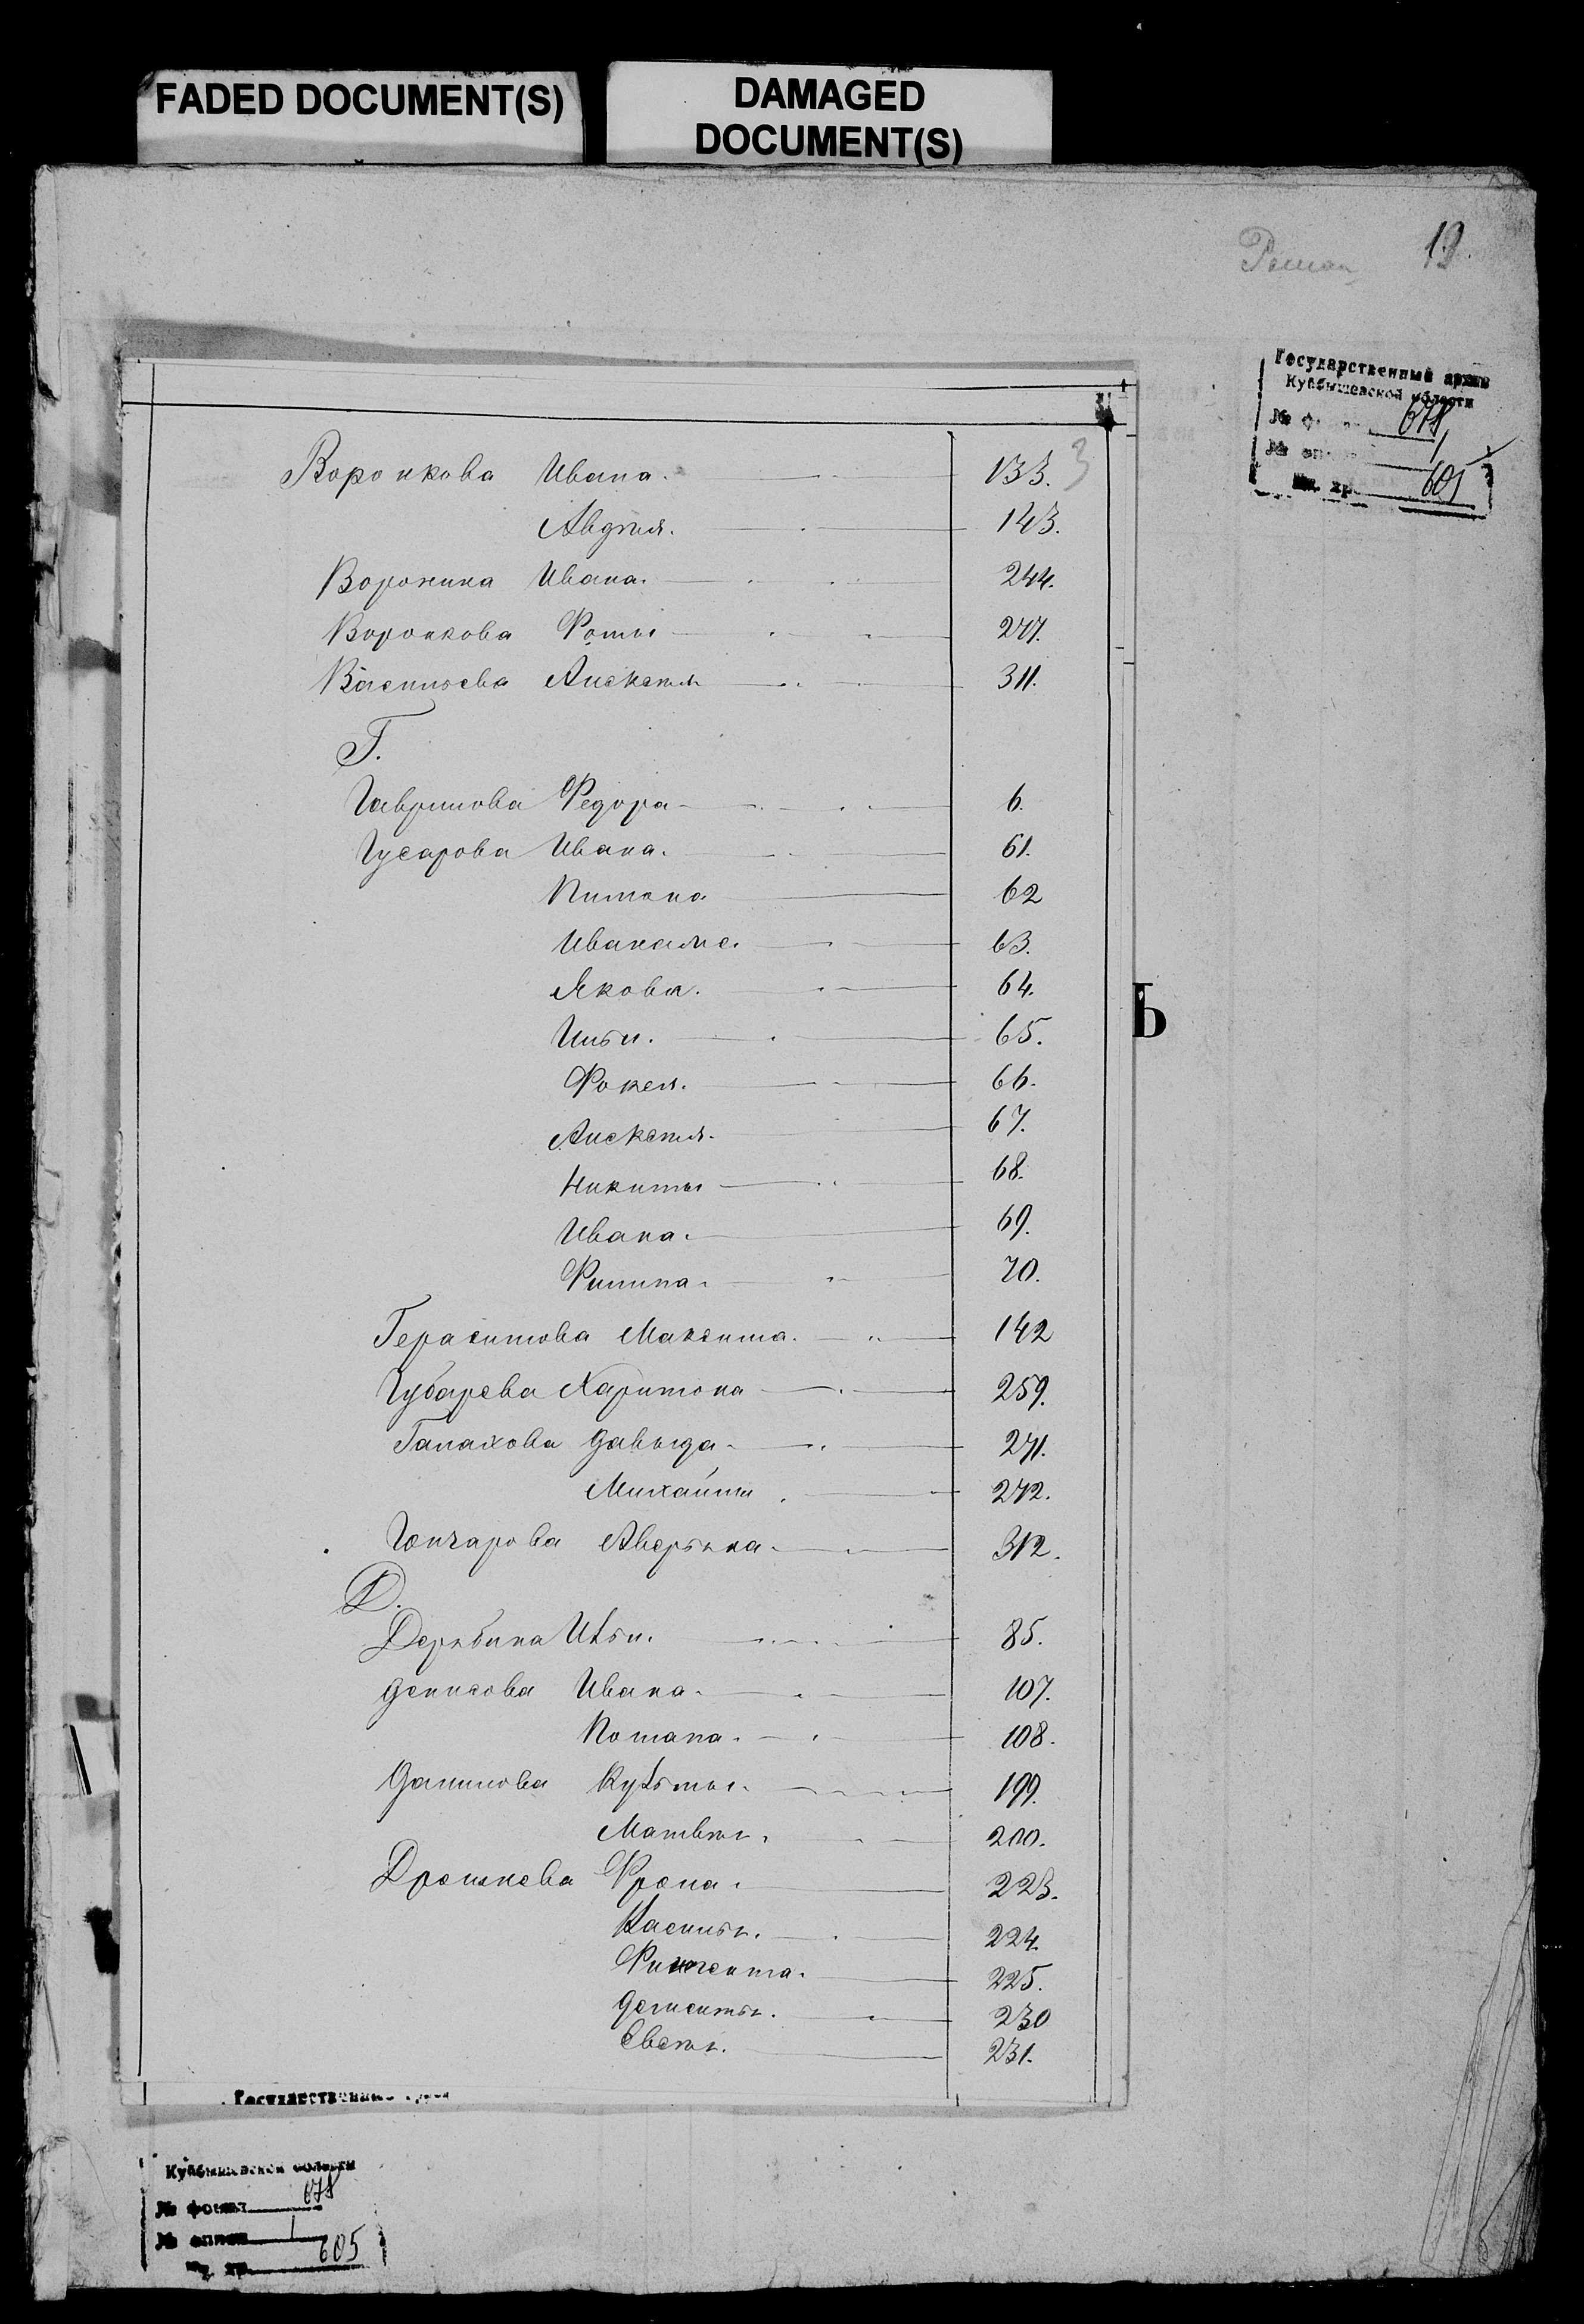 FADED DOCUMENT(S)
DAMAGED
DOCUMENT(S)
19.
Государственный архив
Куйбышевской области
№ фонда 678
№ описи 1
Ед. хр. 605
3
Воронкова Ивана. 133.
Авдея. 143.
Воронина Ивана. 244.
Воронкова Фомы 277.
Васильева Алексея 311.
Г.
Гаврилова Федора 6.
Гусарова Ивана. 61.
Платона 62
Ивана 63.
Якова. 64.
Ильи. 65.
Фокея. 66.
Алексея. 67.
Никиты 68.
Ивана. 69.
Филипа. 70.
Герасимова Максима. 142
Губарева Харитона 259.
Галахова Давыда 271.
Михаила 272.
Гончарова Аверьяна. 312.
Д.
Дерябина Ильи. 85.
Денисова Ивана. 107.
Потапа. 108.
Данилова Кузьмы. 199.
Матвея. 200.
Фрола. 223.
Василья. 224.
225.
230
231.
Ь
Государственный архив
Куйбышевской области
№ фонда 678
№ описи 1
Ед. хр. 605